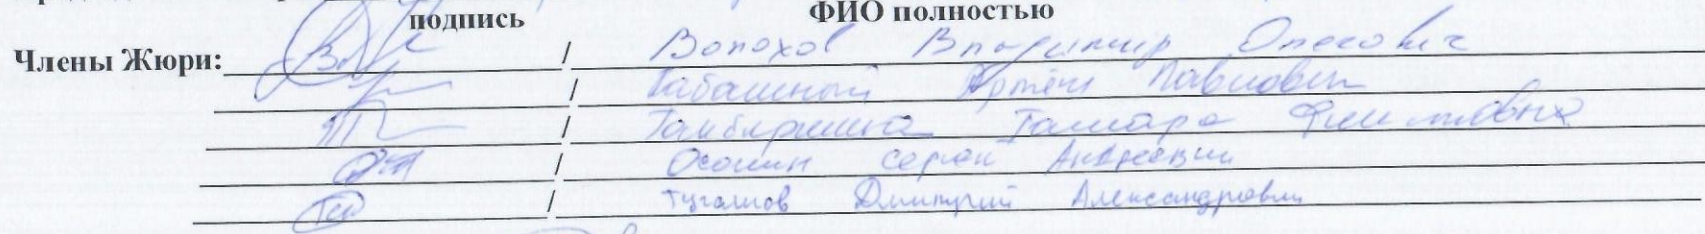 подпись ФИО полностью
Члены Жюри: / Волохов Владимир Олегович
/ Табашный Артём Павлович
/ Тамара
/ Осокин Сергей Андреевич
/ Дмитрий Александрович